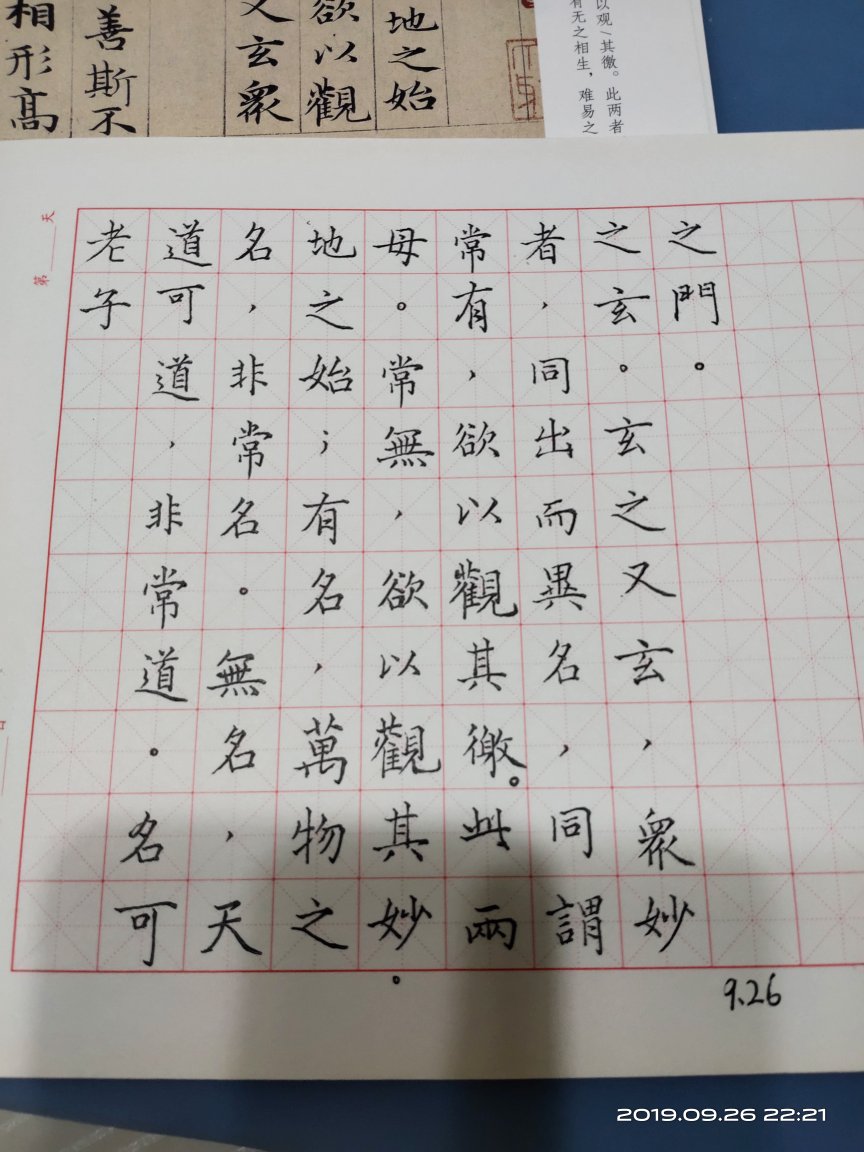 以观\其徼。此两者
有无之相生，难易之
地之始
欲以觀
又玄衆
善斯不
相形高
第 天
老子
道可道，非常道。名可
名，非常名。無名，天
地之始；有名，萬物之
母。常無，欲以觀其妙。
常有，欲以觀其徼。此兩
者，同出而異名，同謂
之玄。玄之又玄，衆妙
之門。
9.26
2019.09.26 22:21